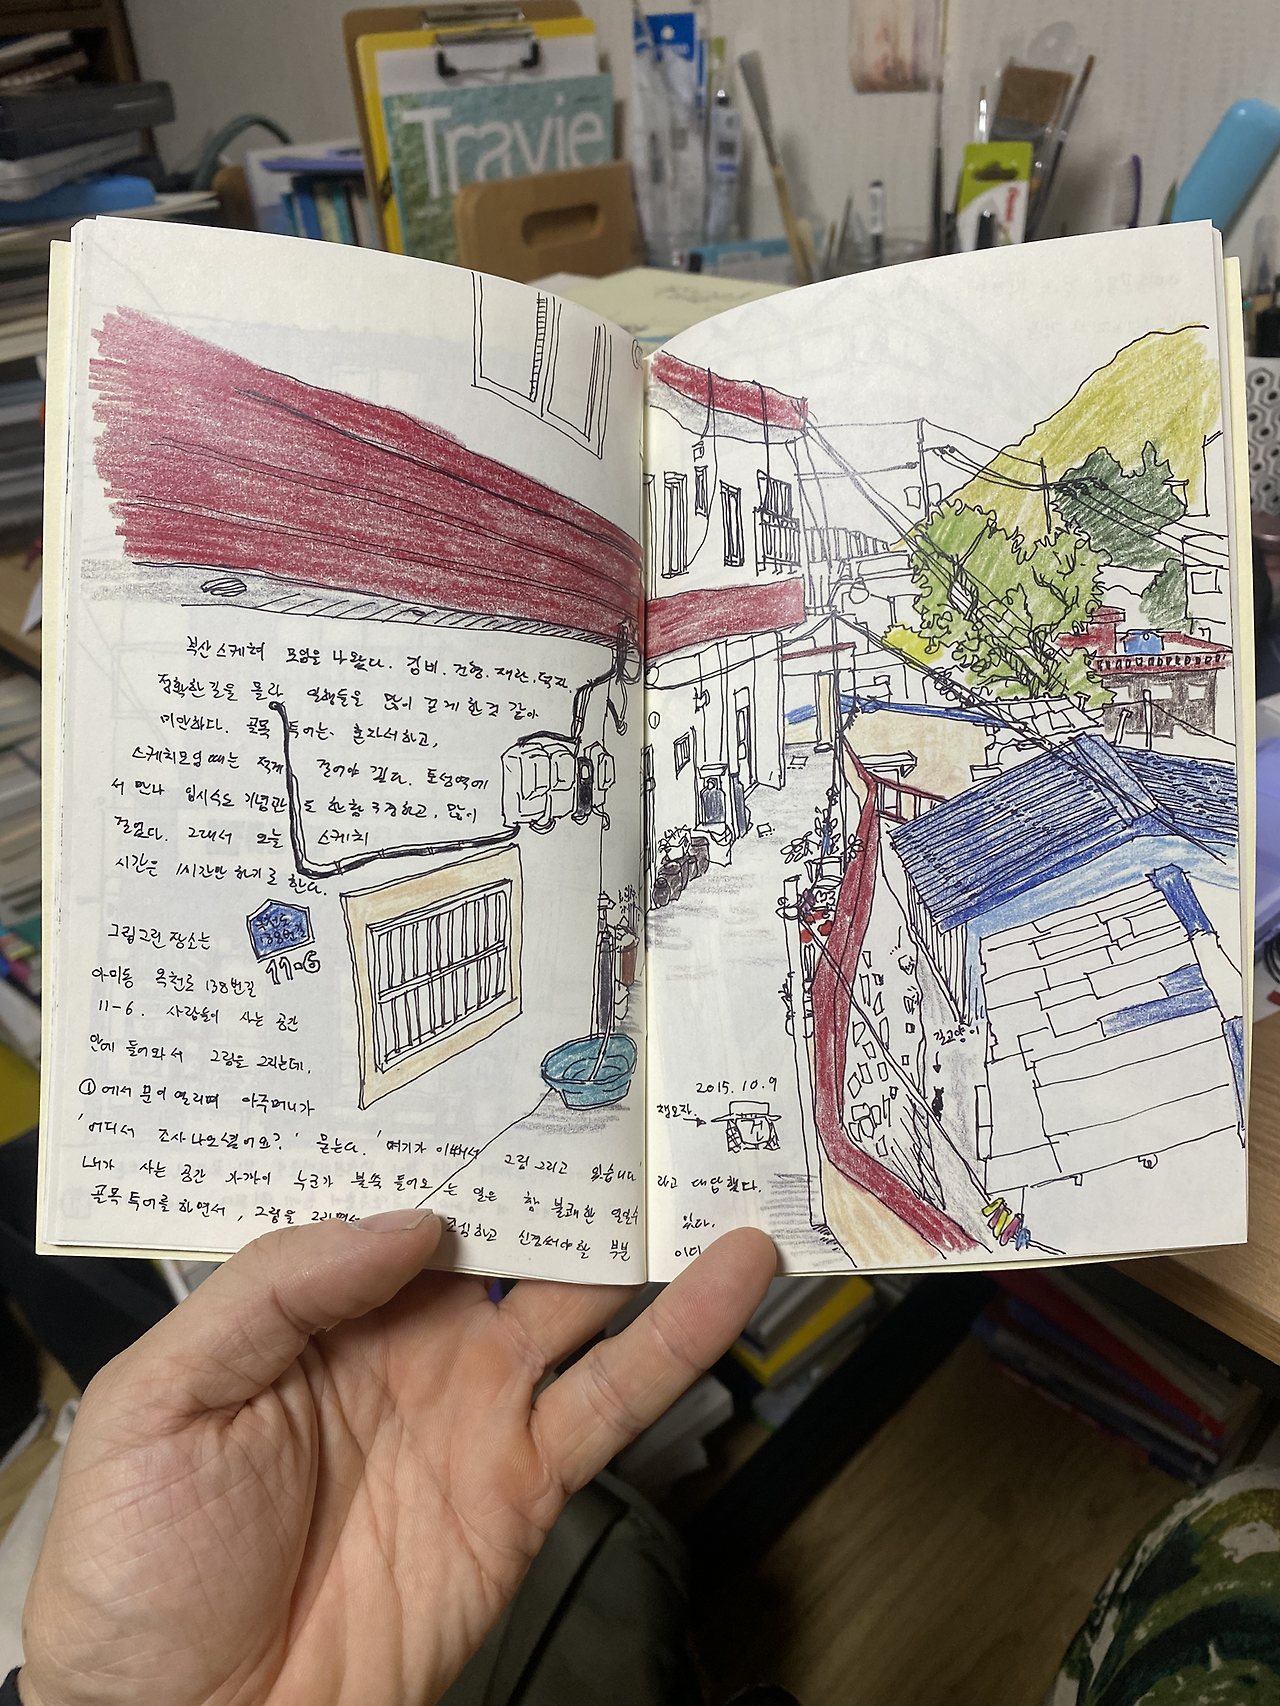 Travie
부산스케쳐 모임을 나왔다. 김비. 건형. 재란. 덕자.
정확한 길을 몰라 일행들을 많이 걷게 한 것 같아
미안하다. 골목 투어는 혼자서 하고,
스케치모임 때는 적게 걸어야 겠다. 토성역에
서 만나 임시수도 기념관도 한참 구경하고, 많이
걸었다. 그래서 오늘 스케치
시간은 1시간만 하기로 한다.
옥천로
138번길
11-6
그림그린 장소는
아미동 옥천로 138번길
11-6. 사람들이 사는 공간
안에 들어와서 그림을 그리는데,
①에서 문이 열리며 아주머니가
'어디서 조사나오셨어요?' 묻는다. '여기가 이뻐서 그림 그리고 있습니다'
라고 대답했다.
내가 사는 공간 가까이 누군가 불쑥 들어오는 일은 참 불쾌한 일일수
있다.
골목 투어를 하면서, 그림을 그리면서 조심하고 신경써야할 부분
이다
①
길고양이
2015. 10. 9
챙모자